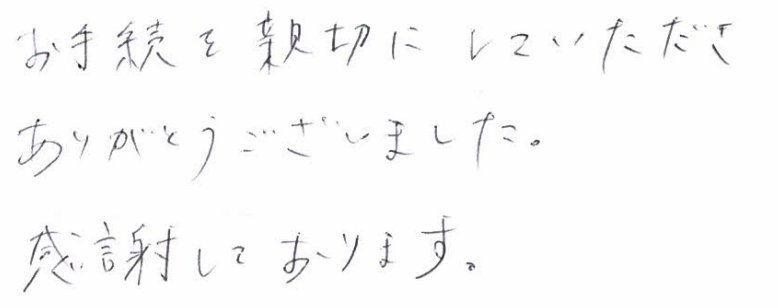 お手続を親切にしていただき
ありがとうございました。
感謝しております。